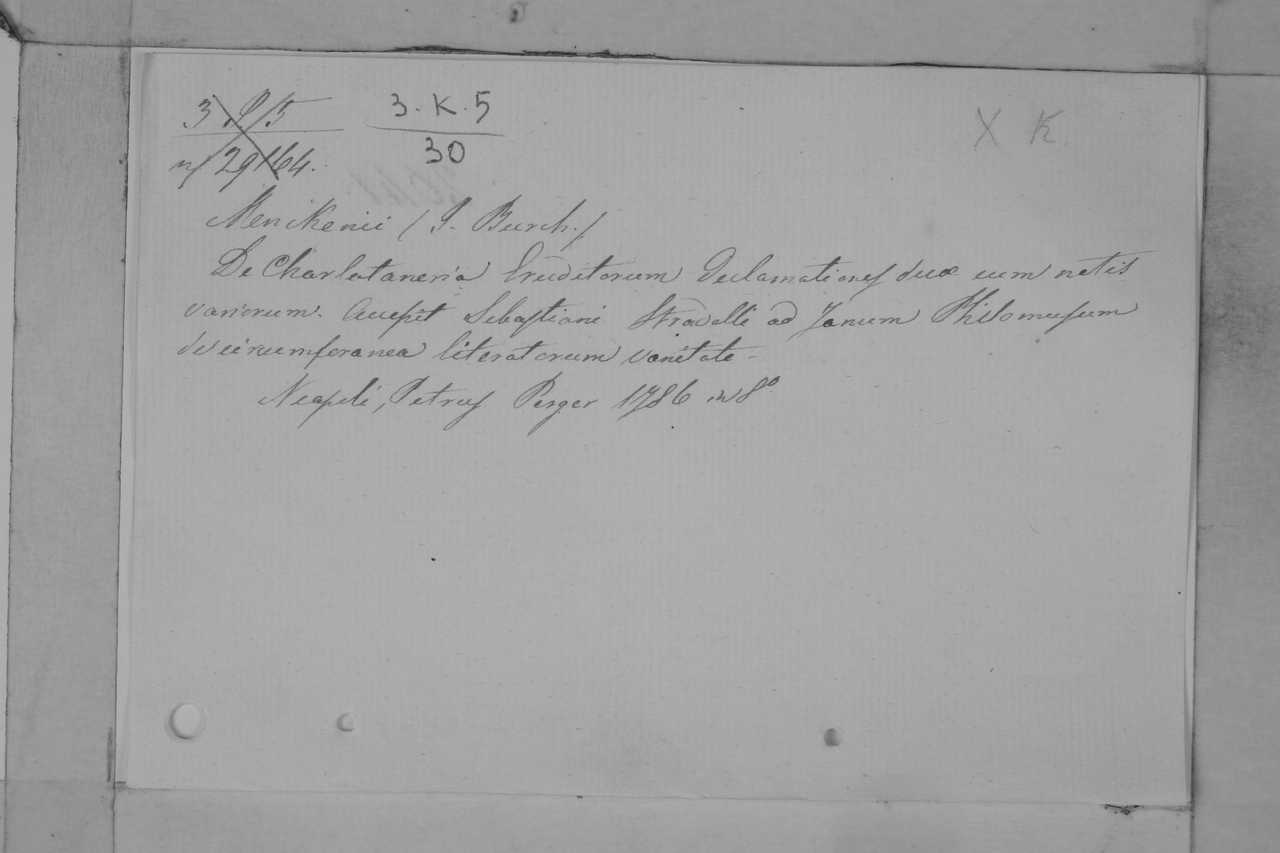 3 P/5 3.K.5 X K
nf 29164. 30
Menikenii (I. Burch.)
De Charlataneria Eruditorum declamationes duæ cum notis
variorum. Accessit Sebastiani Stradelli ad Janum Philomusum
de circumforanea literatorum vanitate.
Neapoli, Petrus Perger 1786 in 8º